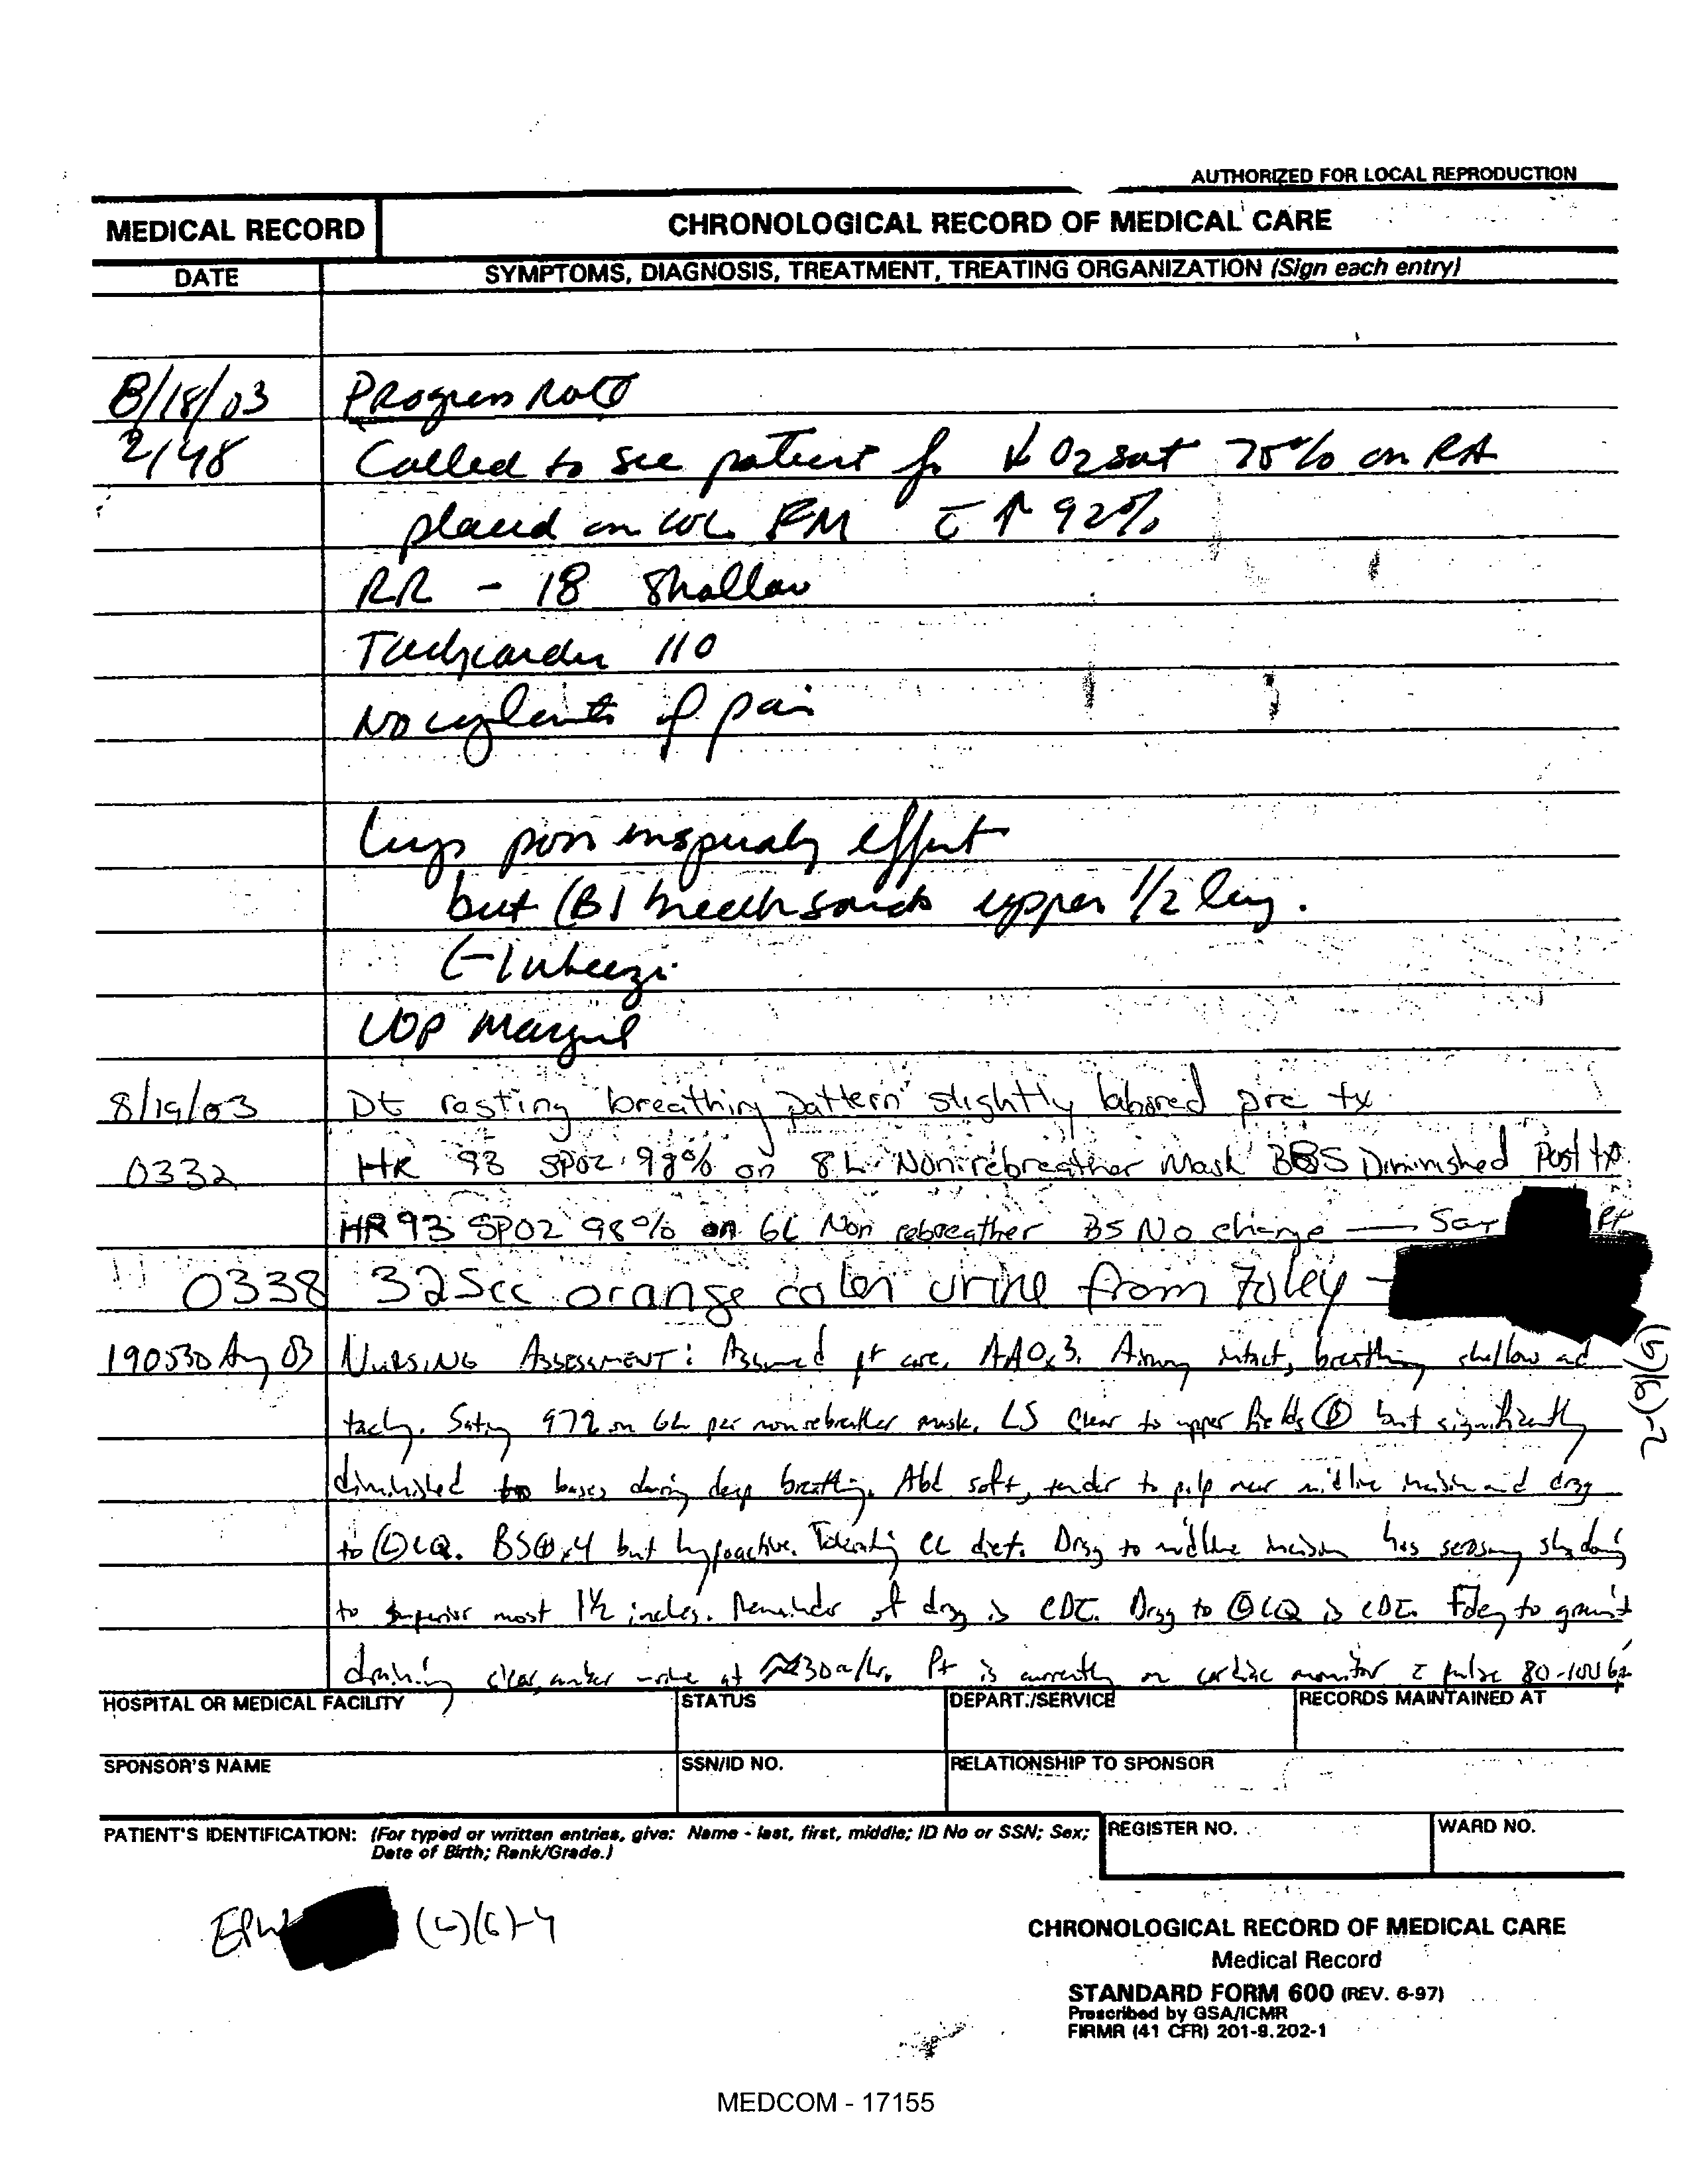 AUTHORIZED FOR LOCAL REPRODUCTION
MEDICAL RECORD
CHRONOLOGICAL RECORD OF MEDICAL CARE
DATE
SYMPTOMS, DIAGNOSIS, TREATMENT, TREATING ORGANIZATION (Sign each entry)
8/18/03 Progress Note
2148 Called to see patient for ↓ O2 sat 75% on RA
placed on FM c̄ ↑ 92%
RR - 18 Shallow
Tachycardia 110
No complaints of pain
Lungs poor inspiratory effort
but (B) breath sounds upper 1/2 lung.
(-) wheezing
UOP Marginal
8/19/03 Pt resting breathing pattern slightly labored pre tx
0332 HR 93 SPO2 98% on 8L Nonrebreather Mask BBS Diminished Post tx
HR 93 SPO2 98% on 6L Non rebreather BS No change —
0338 325cc orange color urine from Foley -
190530 Aug 03 NURSING ASSESSMENT: Assumed pt care. AAOx3. Airway intact, breathing shallow and
tachy. Sating 97% on 6L per nonrebreather mask. LS clear to upper fields (B) but significantly
diminished to bases during deep breathing. Abd soft, tender to palp near midline incision and drsg
to (L)LQ. BS⊕x4 but hypoactive. Tolerating CL diet. Drsg to midline incision has
to superior most 1½ inches. Remainder of drsg is CDI. Drsg to LQ is CDI. Foley to gravity
draining clear, amber urine at ≈230cc/hr. Pt is currently on cardiac monitor c̄ pulse 80-100
(b)(6)-2
HOSPITAL OR MEDICAL FACILITY
STATUS
DEPART./SERVICE
RECORDS MAINTAINED AT
SPONSOR'S NAME
SSN/ID NO.
RELATIONSHIP TO SPONSOR
PATIENT'S IDENTIFICATION: (For typed or written entries, give: Name - last, first, middle; ID No or SSN; Sex;
Date of Birth; Rank/Grade.)
REGISTER NO.
WARD NO.
EPW (b)(6)-4
CHRONOLOGICAL RECORD OF MEDICAL CARE
Medical Record
STANDARD FORM 600 (REV. 6-97)
Prescribed by GSA/ICMR
FIRMR (41 CFR) 201-9.202-1
MEDCOM - 17155